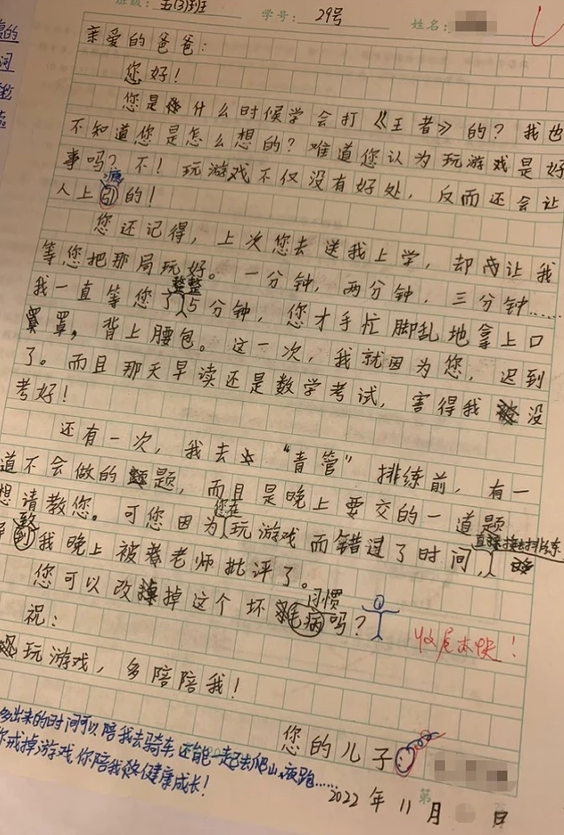 班级：五(3)班 学号：29号 姓名：
亲爱的爸爸：
您好！
您是什么时候学会打《王者》的？我也
不知道您是怎么想的？难道您认为玩游戏是好
事吗？不！玩游戏不仅没有好处，反而还会让
瘾
人上引的！
您还记得，上次您去送我上学，却让我
等您把那局玩好。一分钟，两分钟，三分钟……
整整
我一直等您了15分钟，您才手忙脚乱地拿上口
罩，背上腰包。这一次，我就因为您，迟到
了。而且那天早读还是数学考试，害得我没
考好！
还有一次，我去“青管”排练前，有一
道不会做的题，而且是晚上要交的一道题
想请教您。可您因为玩游戏而错过了时间
您在
我晚上被蒋老师批评了。
您可以改掉这个坏毛病吗？
习惯
收尾太快！
祝：
玩游戏，多陪陪我！
您的儿子
多出来的时间可以陪我去骑车还能一起去爬山、夜跑……
你戒掉游戏，你陪我健康成长！
2022年11月 日